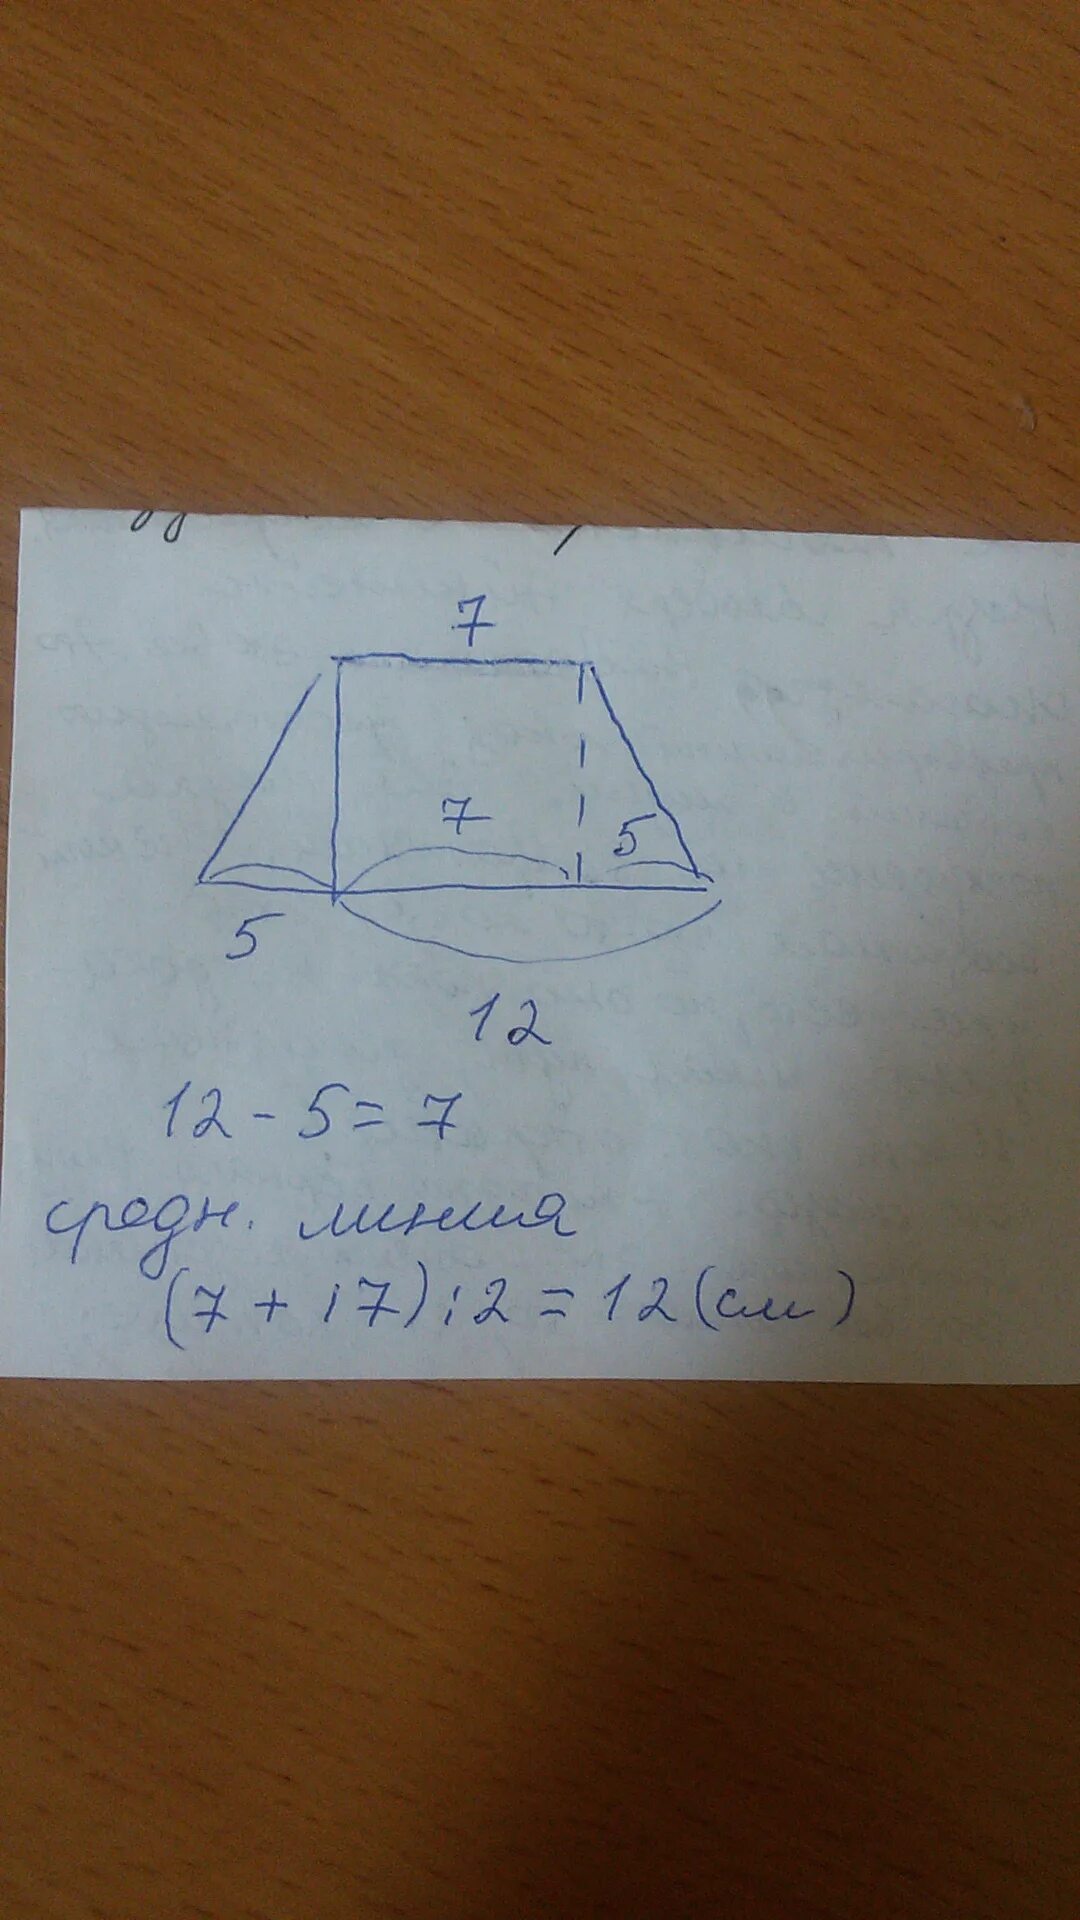 7
7
5
5
12
12 - 5 = 7
средн. линия
(7 + 17) : 2 = 12 (см)